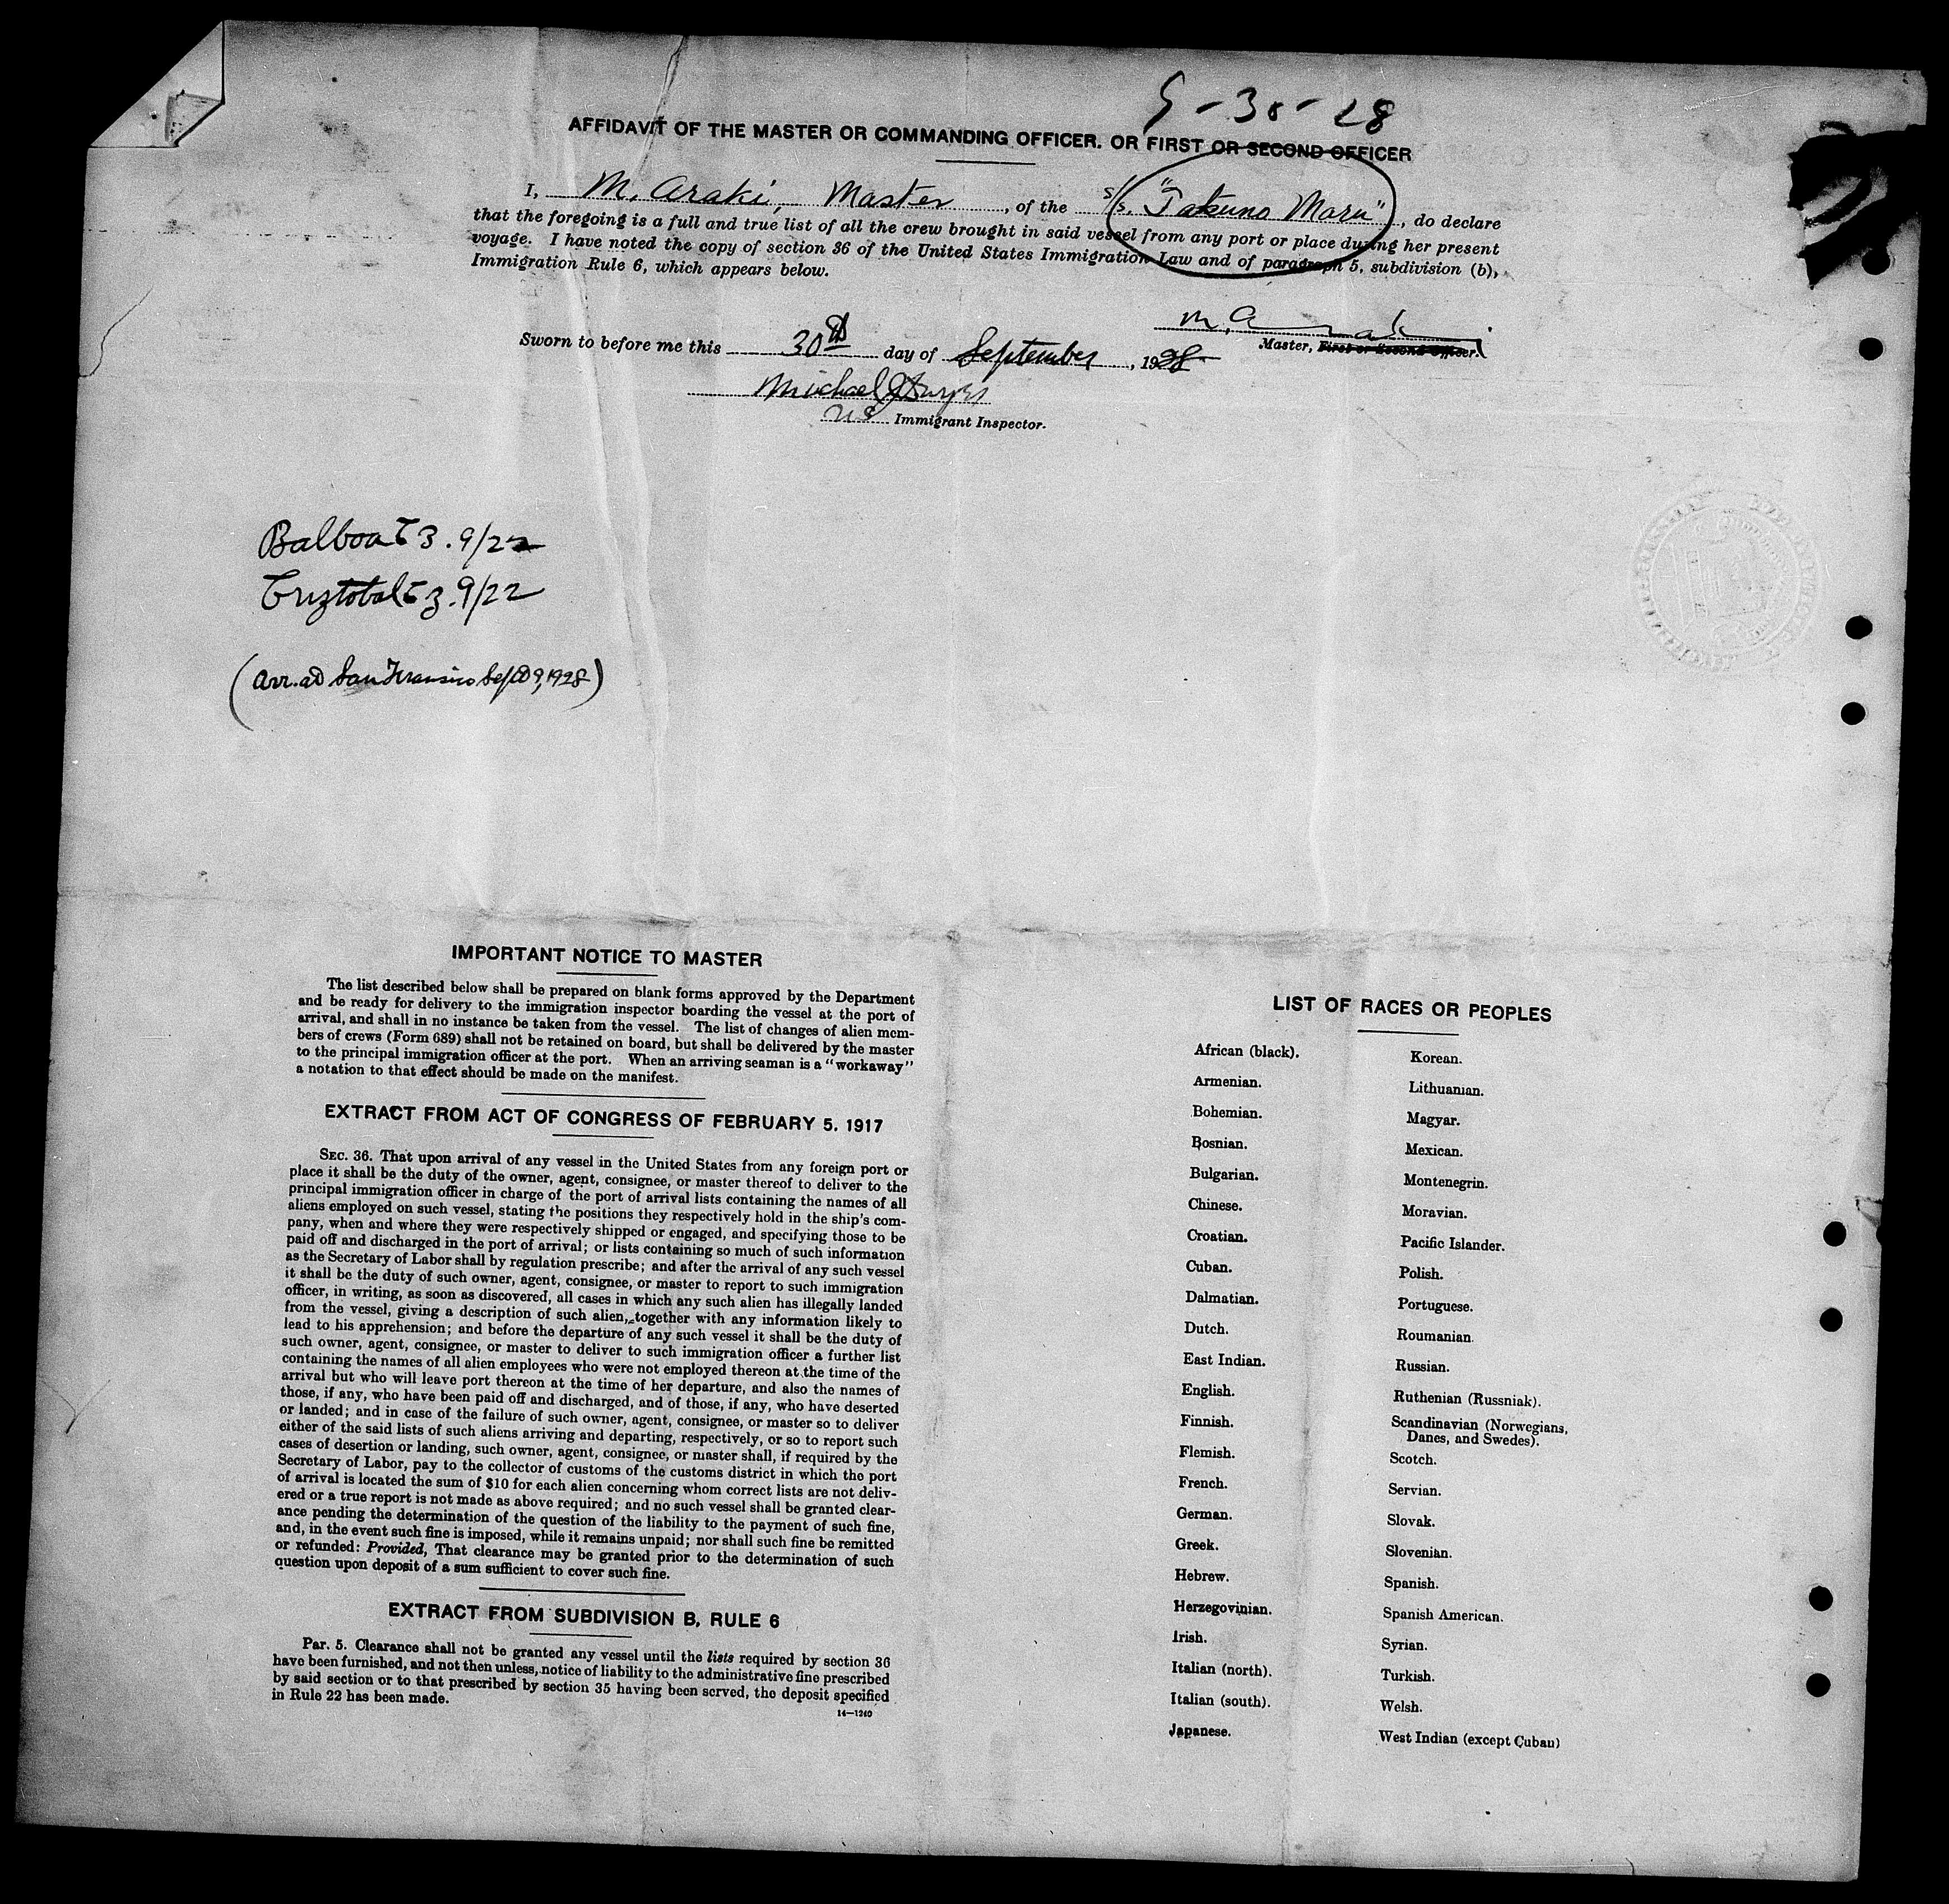 9-30-28
AFFIDAVIT OF THE MASTER OR COMMANDING OFFICER. OR FIRST OR SECOND OFFICER
I, M. Araki, Master, of the S/S. "Takuno Maru", do declare
that the foregoing is a full and true list of all the crew brought in said vessel from any port or place during her present
voyage. I have noted the copy of section 36 of the United States Immigration Law and of paragraph 5, subdivision (b),
Immigration Rule 6, which appears below.
M. Araki
Master, First or Second Officer.
Sworn to before me this 30th day of September, 1928
Michael J.
US Immigrant Inspector.
Balboa C3. 9/22
Cristobal C3. 9/22
(Arr. ad San Fransisco Sept 9, 1928)
IMPORTANT NOTICE TO MASTER
The list described below shall be prepared on blank forms approved by the Department
and be ready for delivery to the immigration inspector boarding the vessel at the port of
arrival, and shall in no instance be taken from the vessel. The list of changes of alien mem-
bers of crews (Form 689) shall not be retained on board, but shall be delivered by the master
to the principal immigration officer at the port. When an arriving seaman is a "workaway"
a notation to that effect should be made on the manifest.
EXTRACT FROM ACT OF CONGRESS OF FEBRUARY 5, 1917
SEC. 36. That upon arrival of any vessel in the United States from any foreign port or
place it shall be the duty of the owner, agent, consignee, or master thereof to deliver to the
principal immigration officer in charge of the port of arrival lists containing the names of all
aliens employed on such vessel, stating the positions they respectively hold in the ship's com-
pany, when and where they were respectively shipped or engaged, and specifying those to be
paid off and discharged in the port of arrival; or lists containing so much of such information
as the Secretary of Labor shall by regulation prescribe; and after the arrival of any such vessel
it shall be the duty of such owner, agent, consignee, or master to report to such immigration
officer, in writing, as soon as discovered, all cases in which any such alien has illegally landed
from the vessel, giving a description of such alien, together with any information likely to
lead to his apprehension; and before the departure of any such vessel it shall be the duty of
such owner, agent, consignee, or master to deliver to such immigration officer a further list
containing the names of all alien employees who were not employed thereon at the time of the
arrival but who will leave port thereon at the time of her departure, and also the names of
those, if any, who have been paid off and discharged, and of those, if any, who have deserted
or landed; and in case of the failure of such owner, agent, consignee, or master so to deliver
either of the said lists of such aliens arriving and departing, respectively, or so to report such
cases of desertion or landing, such owner, agent, consignee, or master shall, if required by the
Secretary of Labor, pay to the collector of customs of the customs district in which the port
of arrival is located the sum of $10 for each alien concerning whom correct lists are not deliv-
ered or a true report is not made as above required; and no such vessel shall be granted clear-
ance pending the determination of the question of the liability to the payment of such fine,
and, in the event such fine is imposed, while it remains unpaid; nor shall such fine be remitted
or refunded: Provided, That clearance may be granted prior to the determination of such
question upon deposit of a sum sufficient to cover such fine.
EXTRACT FROM SUBDIVISION B, RULE 6
Par. 5. Clearance shall not be granted any vessel until the lists required by section 36
have been furnished, and not then unless, notice of liability to the administrative fine prescribed
by said section or to that prescribed by section 35 having been served, the deposit specified
in Rule 22 has been made.
14—1240
LIST OF RACES OR PEOPLES
African (black).
Armenian.
Bohemian.
Bosnian.
Bulgarian.
Chinese.
Croatian.
Cuban.
Dalmatian.
Dutch.
East Indian.
English.
Finnish.
Flemish.
French.
German.
Greek.
Hebrew.
Herzegovinian.
Irish.
Italian (north).
Italian (south).
Japanese.
Korean.
Lithuanian.
Magyar.
Mexican.
Montenegrin.
Moravian.
Pacific Islander.
Polish.
Portuguese.
Roumanian.
Russian.
Ruthenian (Russniak).
Scandinavian (Norwegians,
Danes, and Swedes).
Scotch.
Servian.
Slovak.
Slovenian.
Spanish.
Spanish American.
Syrian.
Turkish.
Welsh.
West Indian (except Cuban)